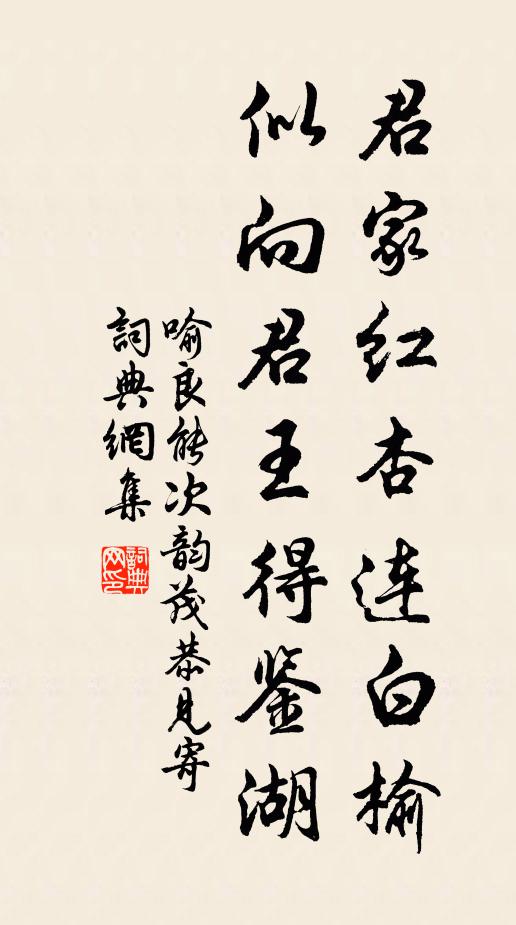 君家红杏连白榆
似向君王得鉴湖
喻良能次韵茂恭见寄
詞典網集
詞典网印